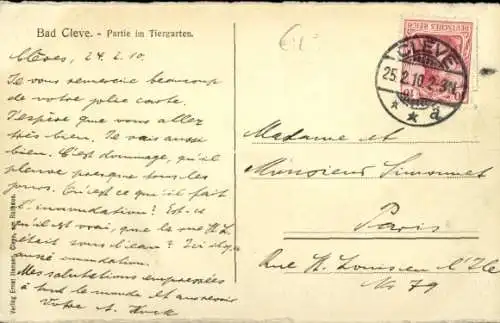 Bad Cleve. - Partie im Tiergarten.
Clèves, 24.2.10.
Je vous remercie beaucoup
de votre jolie carte.
J'espère que vous allez
très bien. Je vais aussi
bien. C'est dommage, qu'il
pleuve presque tous les
jours. Qu'est ce que il fait
l'innundation? Est-ce
qu'il est vrai, que la rue St L.
était sous l'eau? Ici il y a
aussi inundation.
Mes salutations empressées
à tout le monde et au revoir
Votre A.
DEUTSCHES REICH
CLEVE
25.2.10.2-3N.
a
Madame et
Monsieur Simonnet
Paris
Rue St. Louis en l'Ile
No 79
Verlag Ernst Hansen, Cleve,